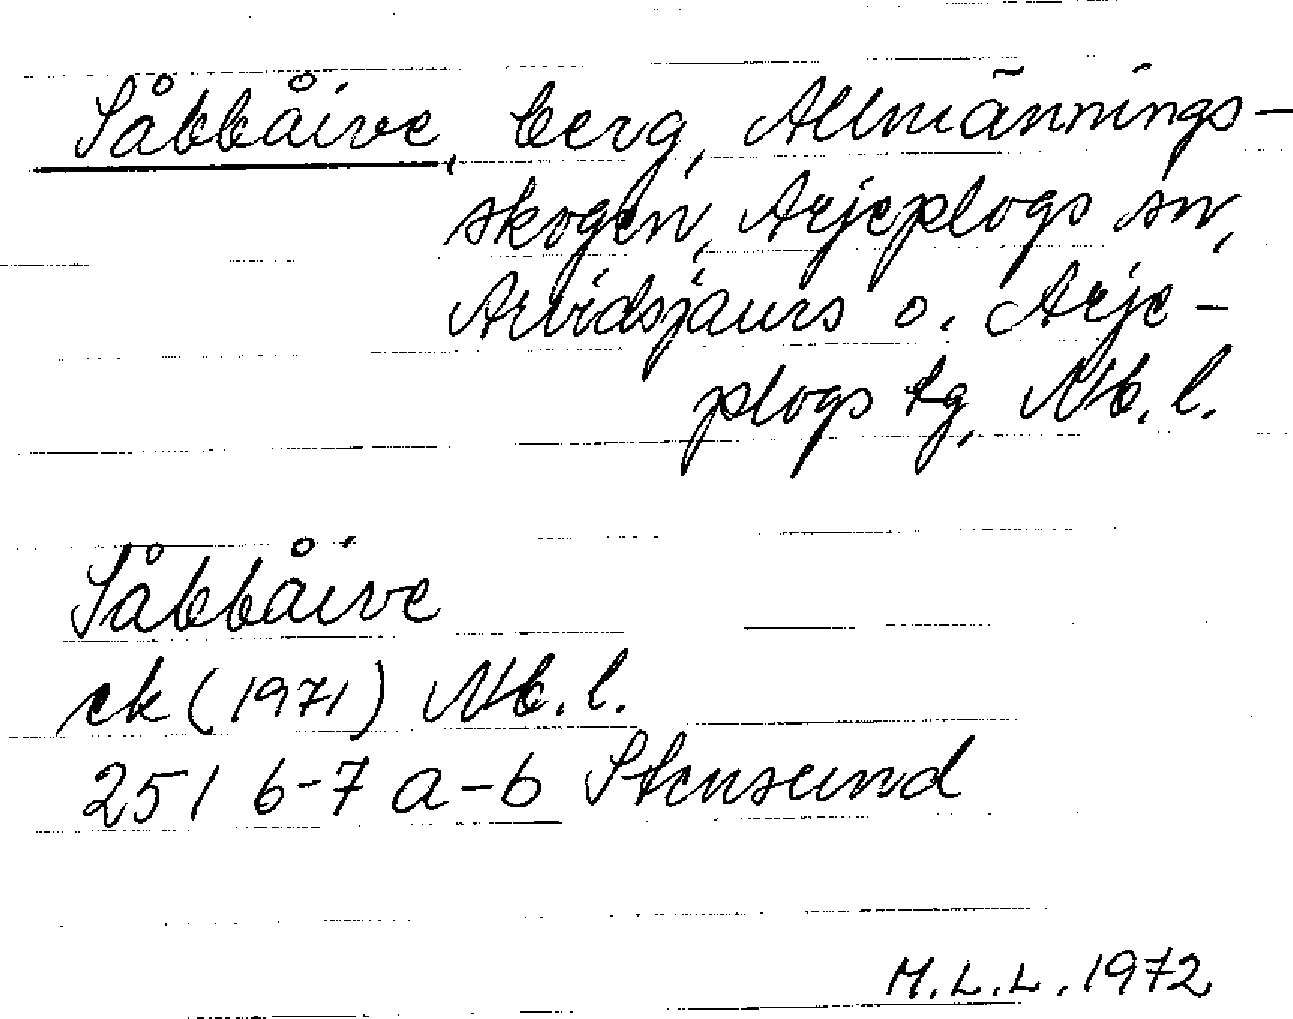 Såbbåive, berg, Allmännings-
skogen, Arjeplogs sn,
Arvidsjaurs o. Arje-
plogs tg, Nb. l.
Såbbåive
ek (1971) Nb. l.
251 6-7 a-b Stensund
M.L.L. 1972